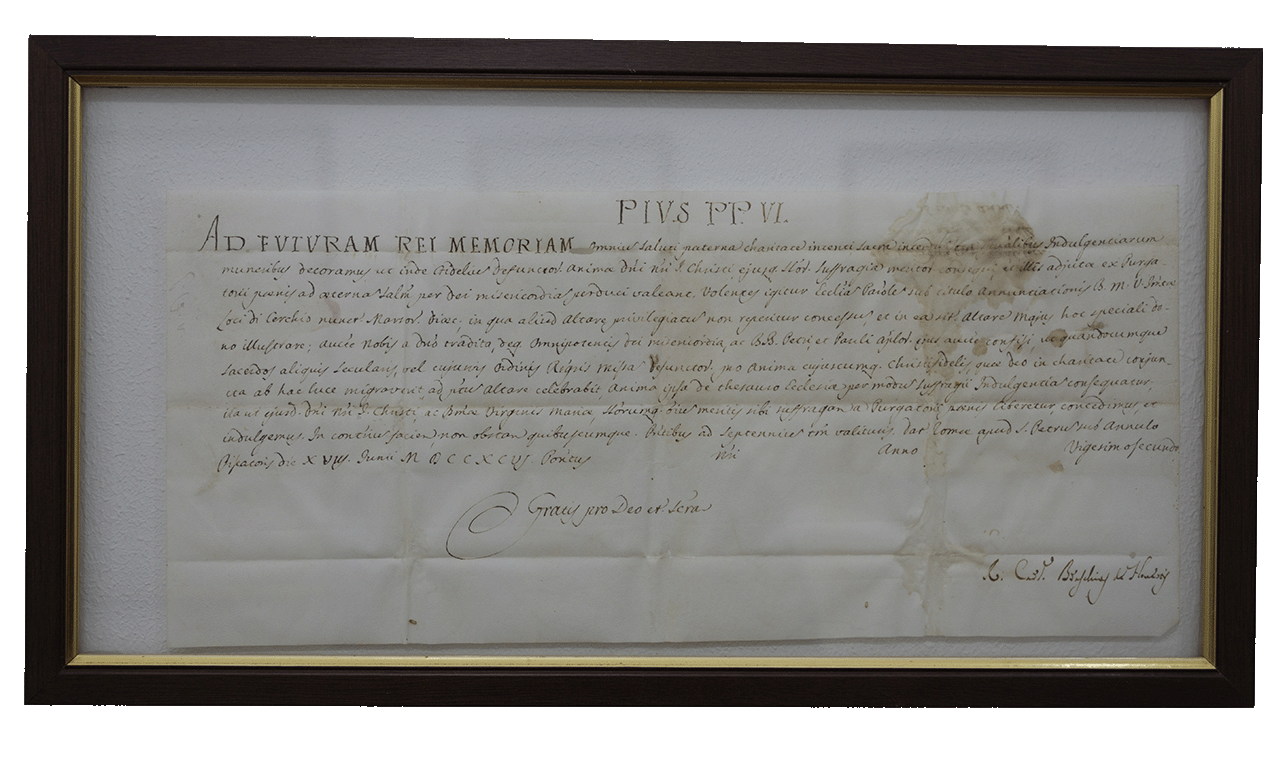 PIVS PP. VI.
AD FVTVRAM REI MEMORIAM Omnius saluti paterna charitate intenti sacra interdum Indulgentiarum
muneribus decoramus ut inde fidelius defunctor. Anima Dñi Nñi J. Christi, ejusq. Stor. suffragia meritor et illis adjuta ex Purga-
torii pœnis ad æterna salm per Dei misericordias perduci valeant. Volentes igitur Ecclia Paiole sub titulo Annunciationis B. M. V. 
Loci di Cerchio nuncr. Marsor. Diœc. in qua aliud Altare privilegiatus non reperitur concessus, et in ea sit. Altare Majus hoc speciali do-
no illustrare; Aucte nobis a Dno tradita, deq. Omnipotentis Dei misericordia, ac B.B. Petri et Pauli Aplor. ejus aucte confisi ut quandocumque
sacerdos aliquis secularis, vel Ordinis Missa Defunctor. pro Anima cujuscumq. Christifidelis, quæ Deo in charitate conjun-
cta ab hac luce migraverit, ad Altare celebrabit, Anima ipsa de thesauro Ecclesiæ per modus suffragii Indulgentia consequatur,
ita ut ejusd. Dñi Nñi J. Christi ac Virginis Mariæ Storumq. oius meritis sibi suffragan a Purgatorii pœnis liberetur, concedimus, et
indulgemus. In contrius facien non obstan quibuscumque. Pntibus ad septennius tm valituris. Dat Romæ apud S. Petrus sub Annulo
Piscatoris die XVII. Junii MDCCXCVI. Pontus Nri Anno Vigesimosecundo
Gratis pro Deo et Scra